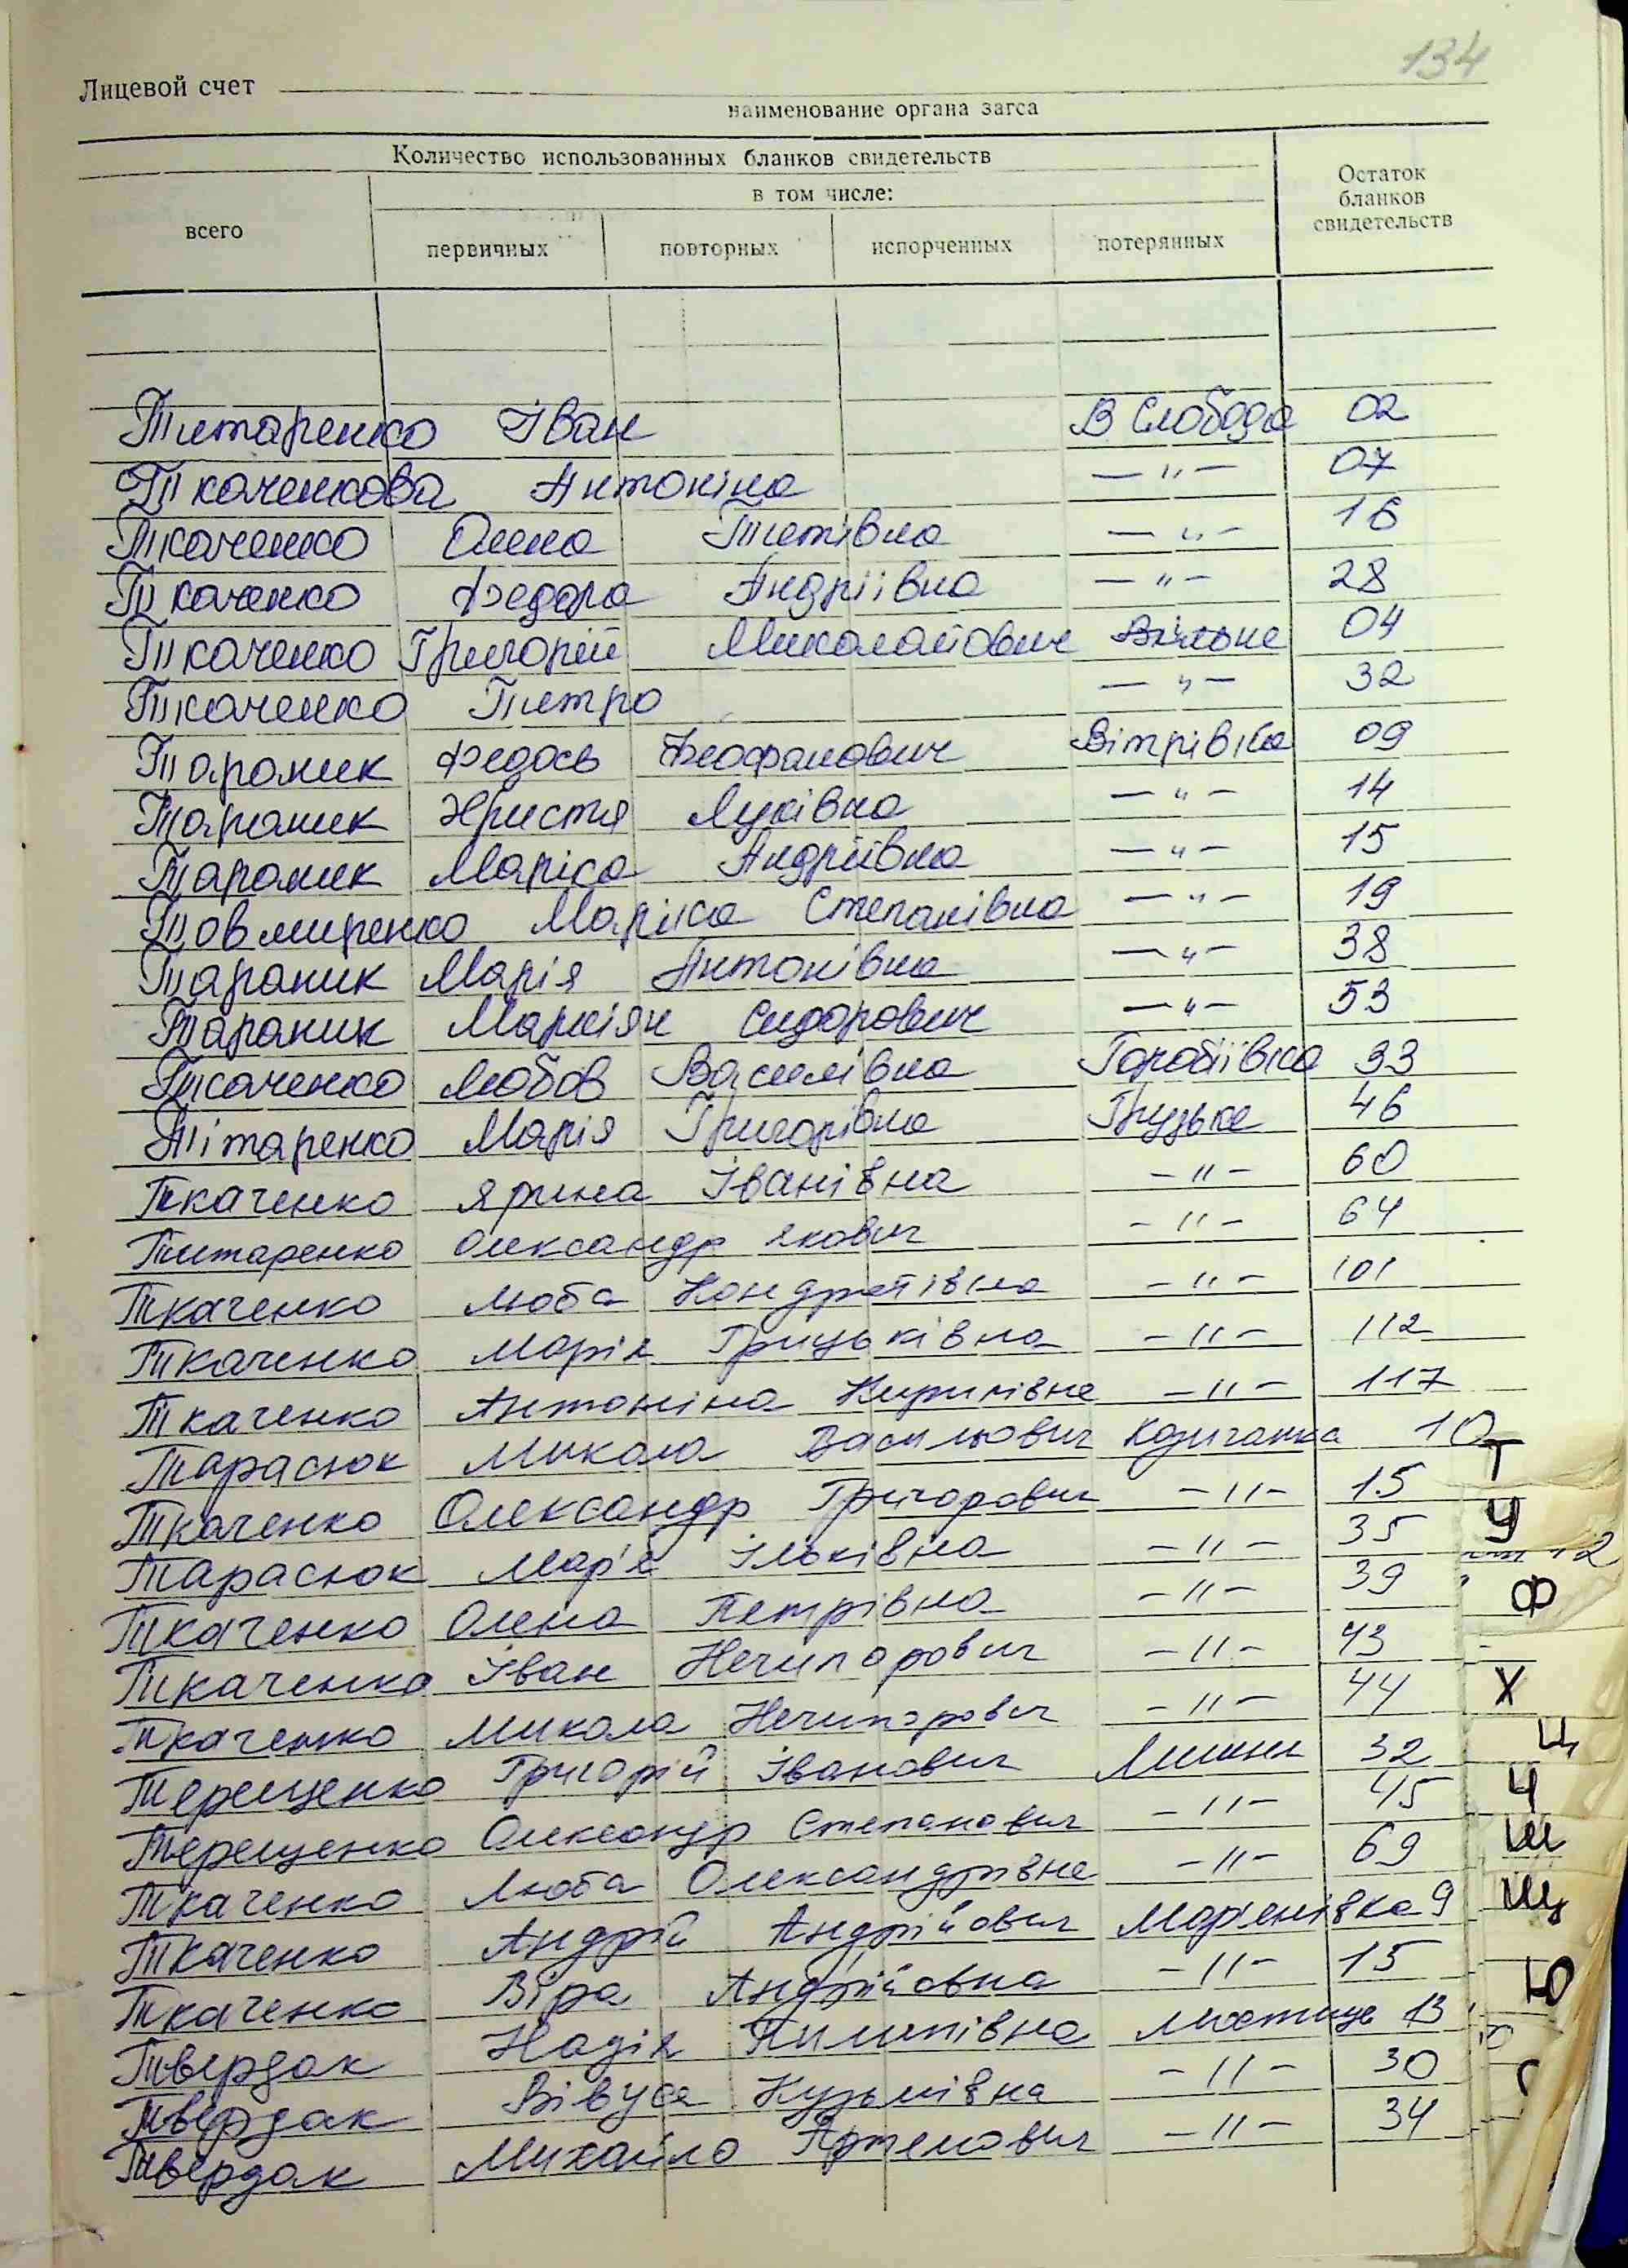 134
Лицевой счет
наименование органа загса
Количество использованных бланков свидетельств
Остаток бланков свидетельств
в том числе:
всего
первичных повторных испорченных потерянных
Титаренко Іван В Слобода 02
Ткаченкова Антоніна —〃— 07
Ткаченко Олена Титівна —〃— 16
Ткаченко Федора Андріївна —〃— 28
Ткаченко Григорій Миколайович Вільне 04
Ткаченко Петро —〃— 32
Тараник Федось Феофанович Вітрівка 09
Тараник Христя Луківна —〃— 14
Тараник Маріса Андріївна —〃— 15
Товмиренко Маріка Степанівна —〃— 19
Тараник Марія Антонівна —〃— 38
Тараник Маркіян Сидорович —〃— 53
Ткаченко Любов Василівна Горобіївка 33
Тітаренко Марія Григорівна Грузьке 46
Ткаченко Ярина Іванівна —〃— 60
Титаренко Олександр Якович —〃— 64
Ткаченко Люба Кондратівна —〃— 101
Ткаченко Марія Грицьківна —〃— 112
Ткаченко Антоніна Кирилівна —〃— 117
Тарасюк Микола Васильович Козичанка 10
Ткаченко Олександр Григорович —〃— 15
Тарасюк Мар'я Ільківна —〃— 35
Ткаченко Олена Петрівна —〃— 39
Ткаченко Іван Нечипорович —〃— 43
Ткаченко Микола Нечипорович —〃— 44
Терещенко Григорій Іванович 32
Терещенко Олександр Степанович —〃— 45
Ткаченко Люба Олександрівна —〃— 69
Ткаченко Андрій Андрійович Мар'янівка 9
Ткаченко Віра Андрійовна —〃— 15
Твердак Надія Пилипівна 13
Твердак Кузьмівна —〃— 30
Твердак Михайло Артемович —〃— 34
Т
У
Ф
Х
Ц
Ч
Ш
Щ
Ю